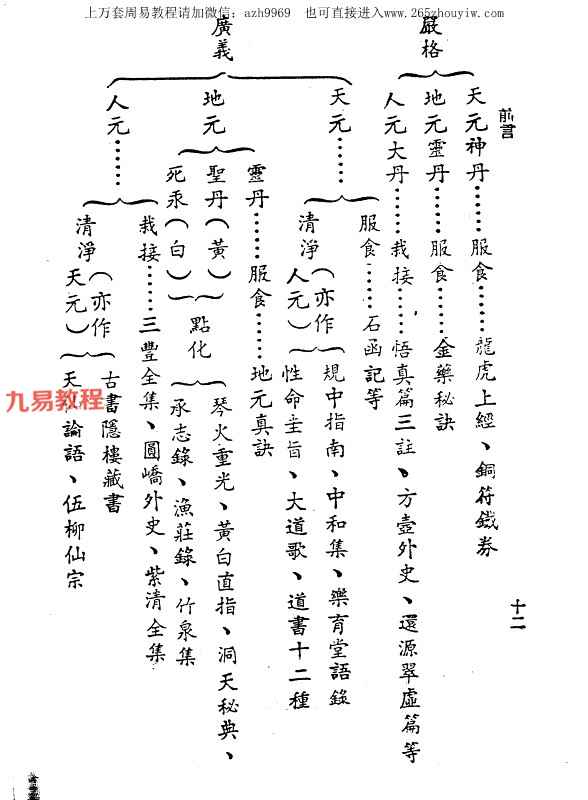 上万套周易教程请加微信：azh9969 也可直接进入www.265zhouyiw.com
前言
十二
嚴格
天元神丹……服食……龍虎上經、銅符鐵券
地元靈丹……服食……金藥秘訣
人元大丹……栽接……悟真篇三註、方壺外史、還源翠虛篇等
廣義
天元……
服食……石函記等
清淨（亦作人元）
規中指南、中和集、樂育堂語錄
性命圭旨、大道歌、道書十二種
地元
靈丹……服食……地元真訣
聖丹（黃）
死汞（白）
點化
琴火重光、黃白直指、洞天秘典、
承志錄、漁莊錄、竹泉集
人元……
栽接……三豐全集、圓嶠外史、紫清全集
清淨（亦作天元）
古書隱樓藏書
天仙論語、伍柳仙宗
九易教程